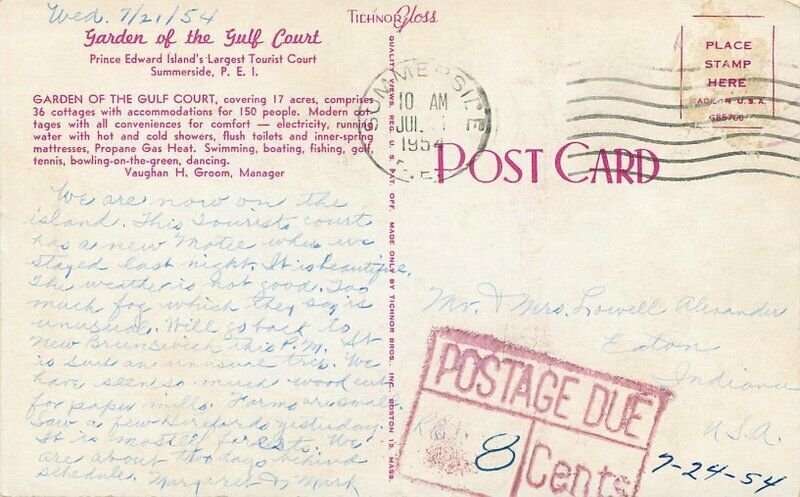 Wed. 7/21/54
Garden of the Gulf Court
Prince Edward Island's Largest Tourist Court
Summerside, P. E. I.
GARDEN OF THE GULF COURT, covering 17 acres, comprises
36 cottages with accommodations for 150 people. Modern cot-
tages with all conveniences for comfort — electricity, running
water with hot and cold showers, flush toilets and inner-spring
mattresses, Propane Gas Heat. Swimming, boating, fishing, golf,
tennis, bowling-on-the-green, dancing.
Vaughan H. Groom, Manager
We are now on the
island. This Tourist court
has a new Motel where we
stayed last night. It is beautiful.
The weather is not good. Too
much fog which they say is
unusual. Will go back to
New Brunswick this P.M. It
is such an unusual trip. We
have seen so much wood cut
for paper mills. Farms are small.
Saw a few Herefords yesterday.
It is mostly forests. We
are about two days behind
schedule. Margaret & Mark
TICHNOR Gloss
QUALITY VIEWS, REG. U. S. PAT. OFF. MADE ONLY BY TICHNOR BROS., INC., BOSTON 15, MASS.
SUMMERSIDE
10 AM
JUL
1954
P.E.I.
POST CARD
PLACE
STAMP
HERE
MADE IN U.S.A.
Mr. & Mrs. Lowell Alexander
Eaton
Indiana
U.S.A.
POSTAGE DUE
8 Cents
7-24-54